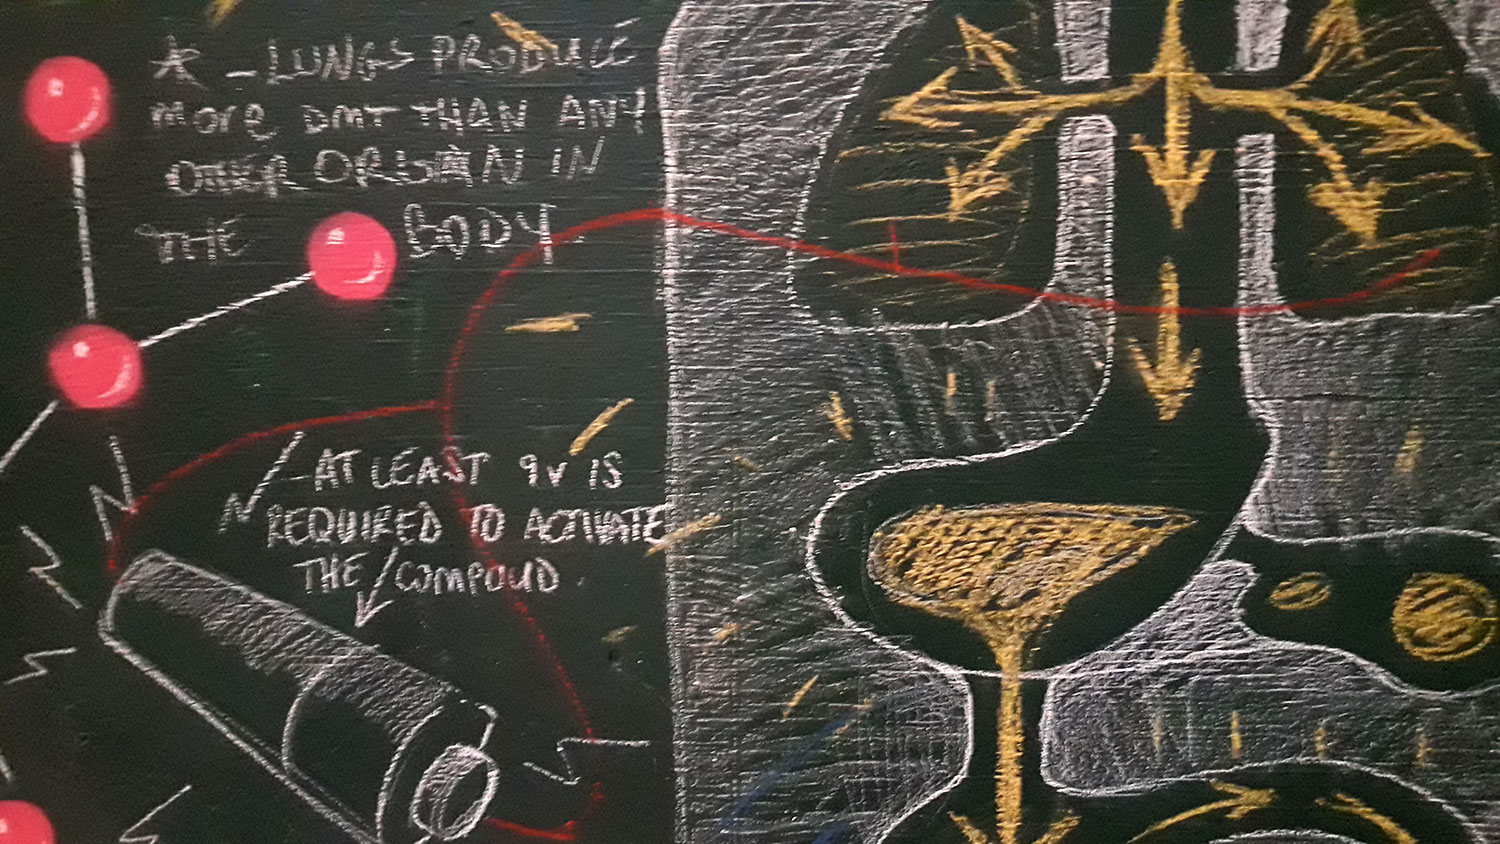 * - LUNGS PRODUCE
more DMT THAN ANY
OTHER ORGAN IN
THE BODY.
- AT LEAST 9V IS
REQUIRED TO ACTIVATE
THE / COMPOUD.